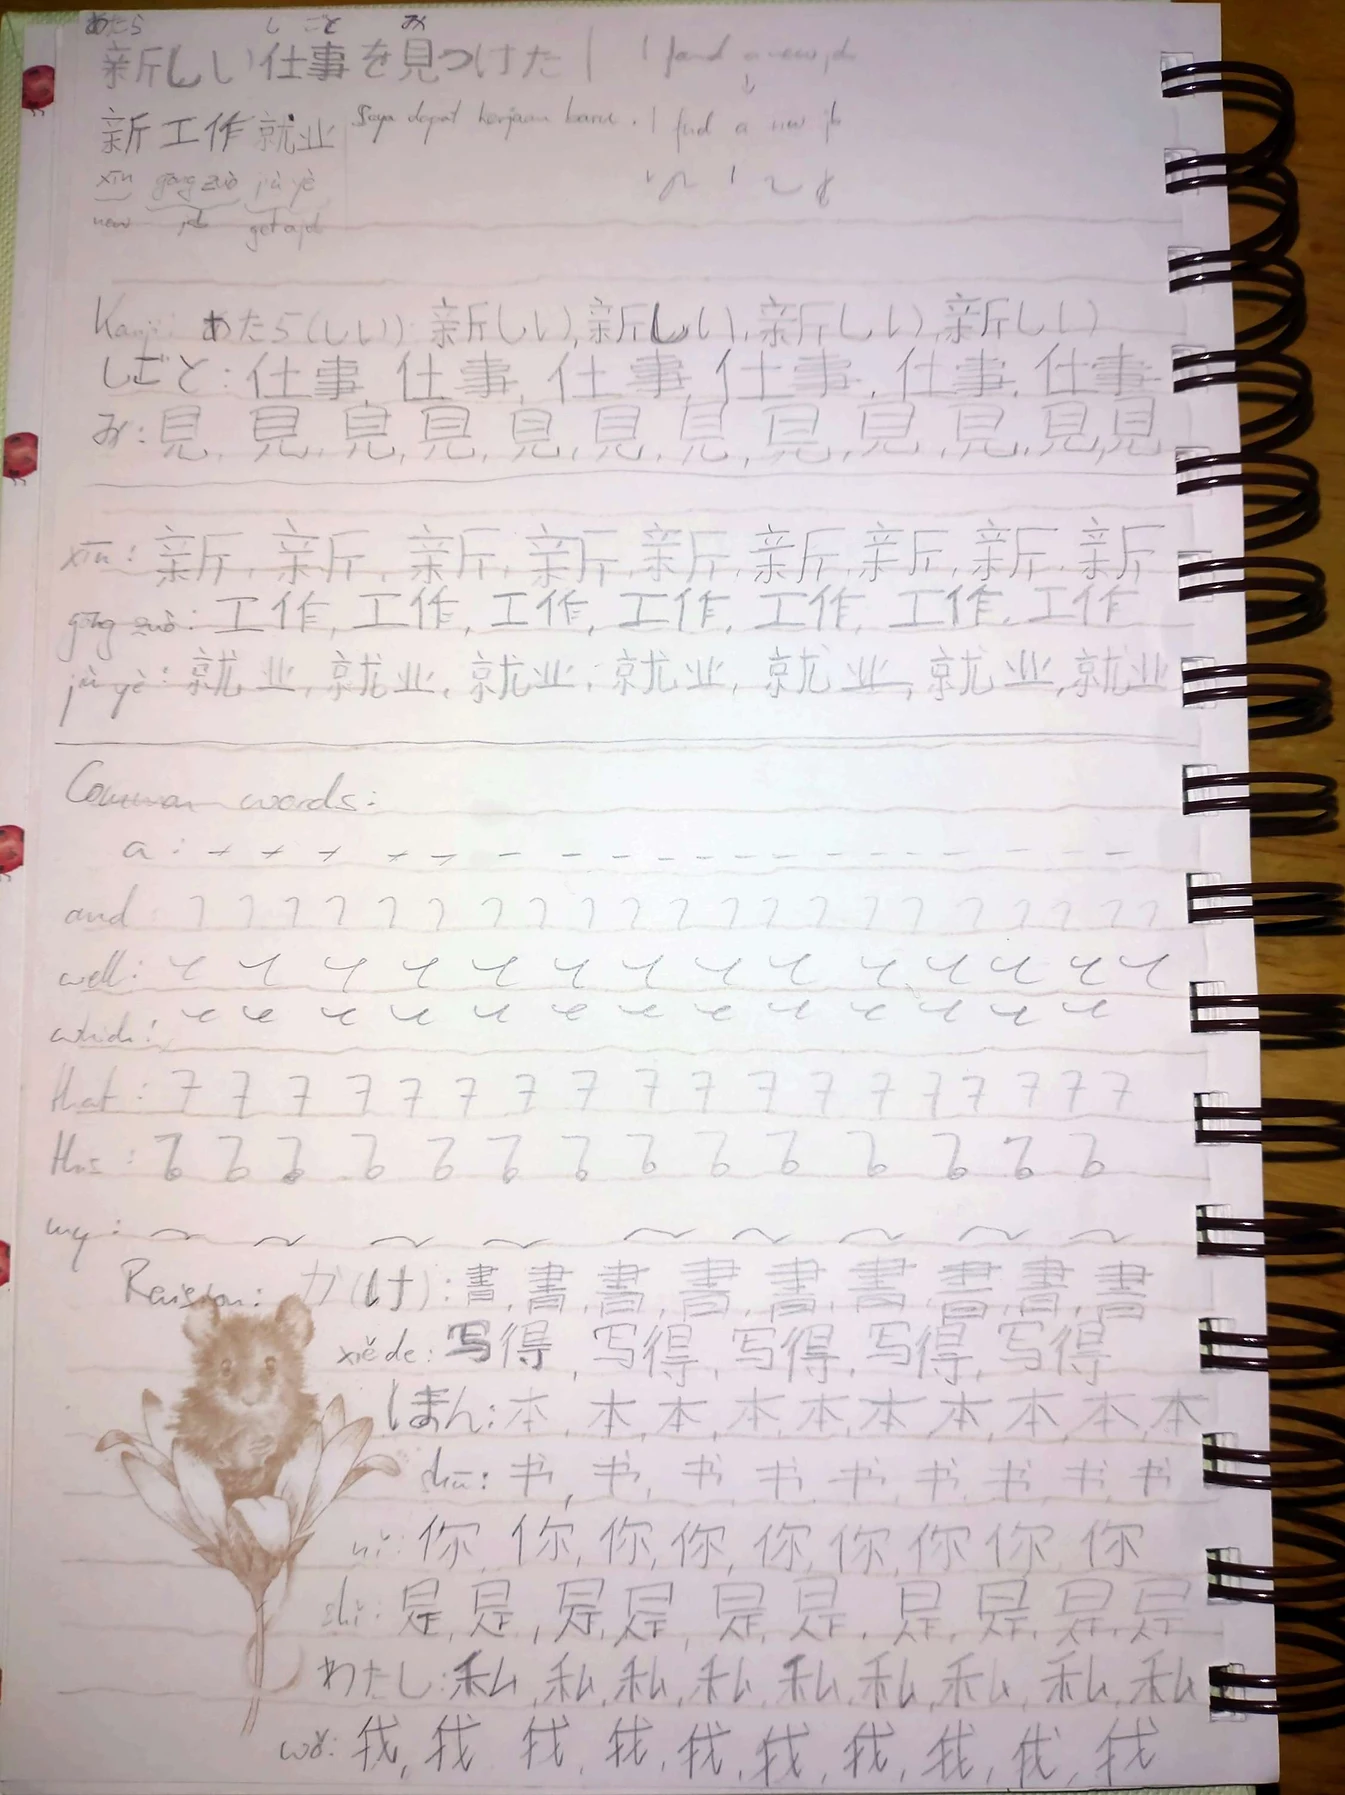 あたら しごと み
新しい仕事を見つけた | I found a new job
新工作就业 Saya dapat kerjaan baru. I find a new job
xīn gōng zuò jiù yè
new job get a job
Kanji: あたら(しい): 新しい), 新しい), 新しい), 新しい)
しごと: 仕事, 仕事, 仕事, 仕事, 仕事, 仕事
み: 見, 見, 見, 見, 見, 見, 見, 見, 見, 見, 見, 見
xīn: 新, 新, 新, 新, 新, 新, 新, 新, 新
gōng zuò: 工作, 工作, 工作, 工作, 工作, 工作, 工作
jiù yè: 就业, 就业, 就业, 就业, 就业, 就业, 就业
Common words:
a:
and
well:
which:
that:
this:
my:
Revision: か(け): 書, 書, 書, 書, 書, 書, 書, 書, 書
xiě de: 写得, 写得, 写得, 写得, 写得
ほん: 本, 本, 本, 本, 本, 本, 本, 本, 本, 本
shū: 书, 书, 书, 书, 书, 书, 书, 书, 书
nǐ: 你, 你, 你, 你, 你, 你, 你, 你, 你
shì: 是, 是, 是, 是, 是, 是, 是, 是, 是, 是
わたし: 私, 私, 私, 私, 私, 私, 私, 私, 私
wǒ: 我, 我, 我, 我, 我, 我, 我, 我, 我, 我